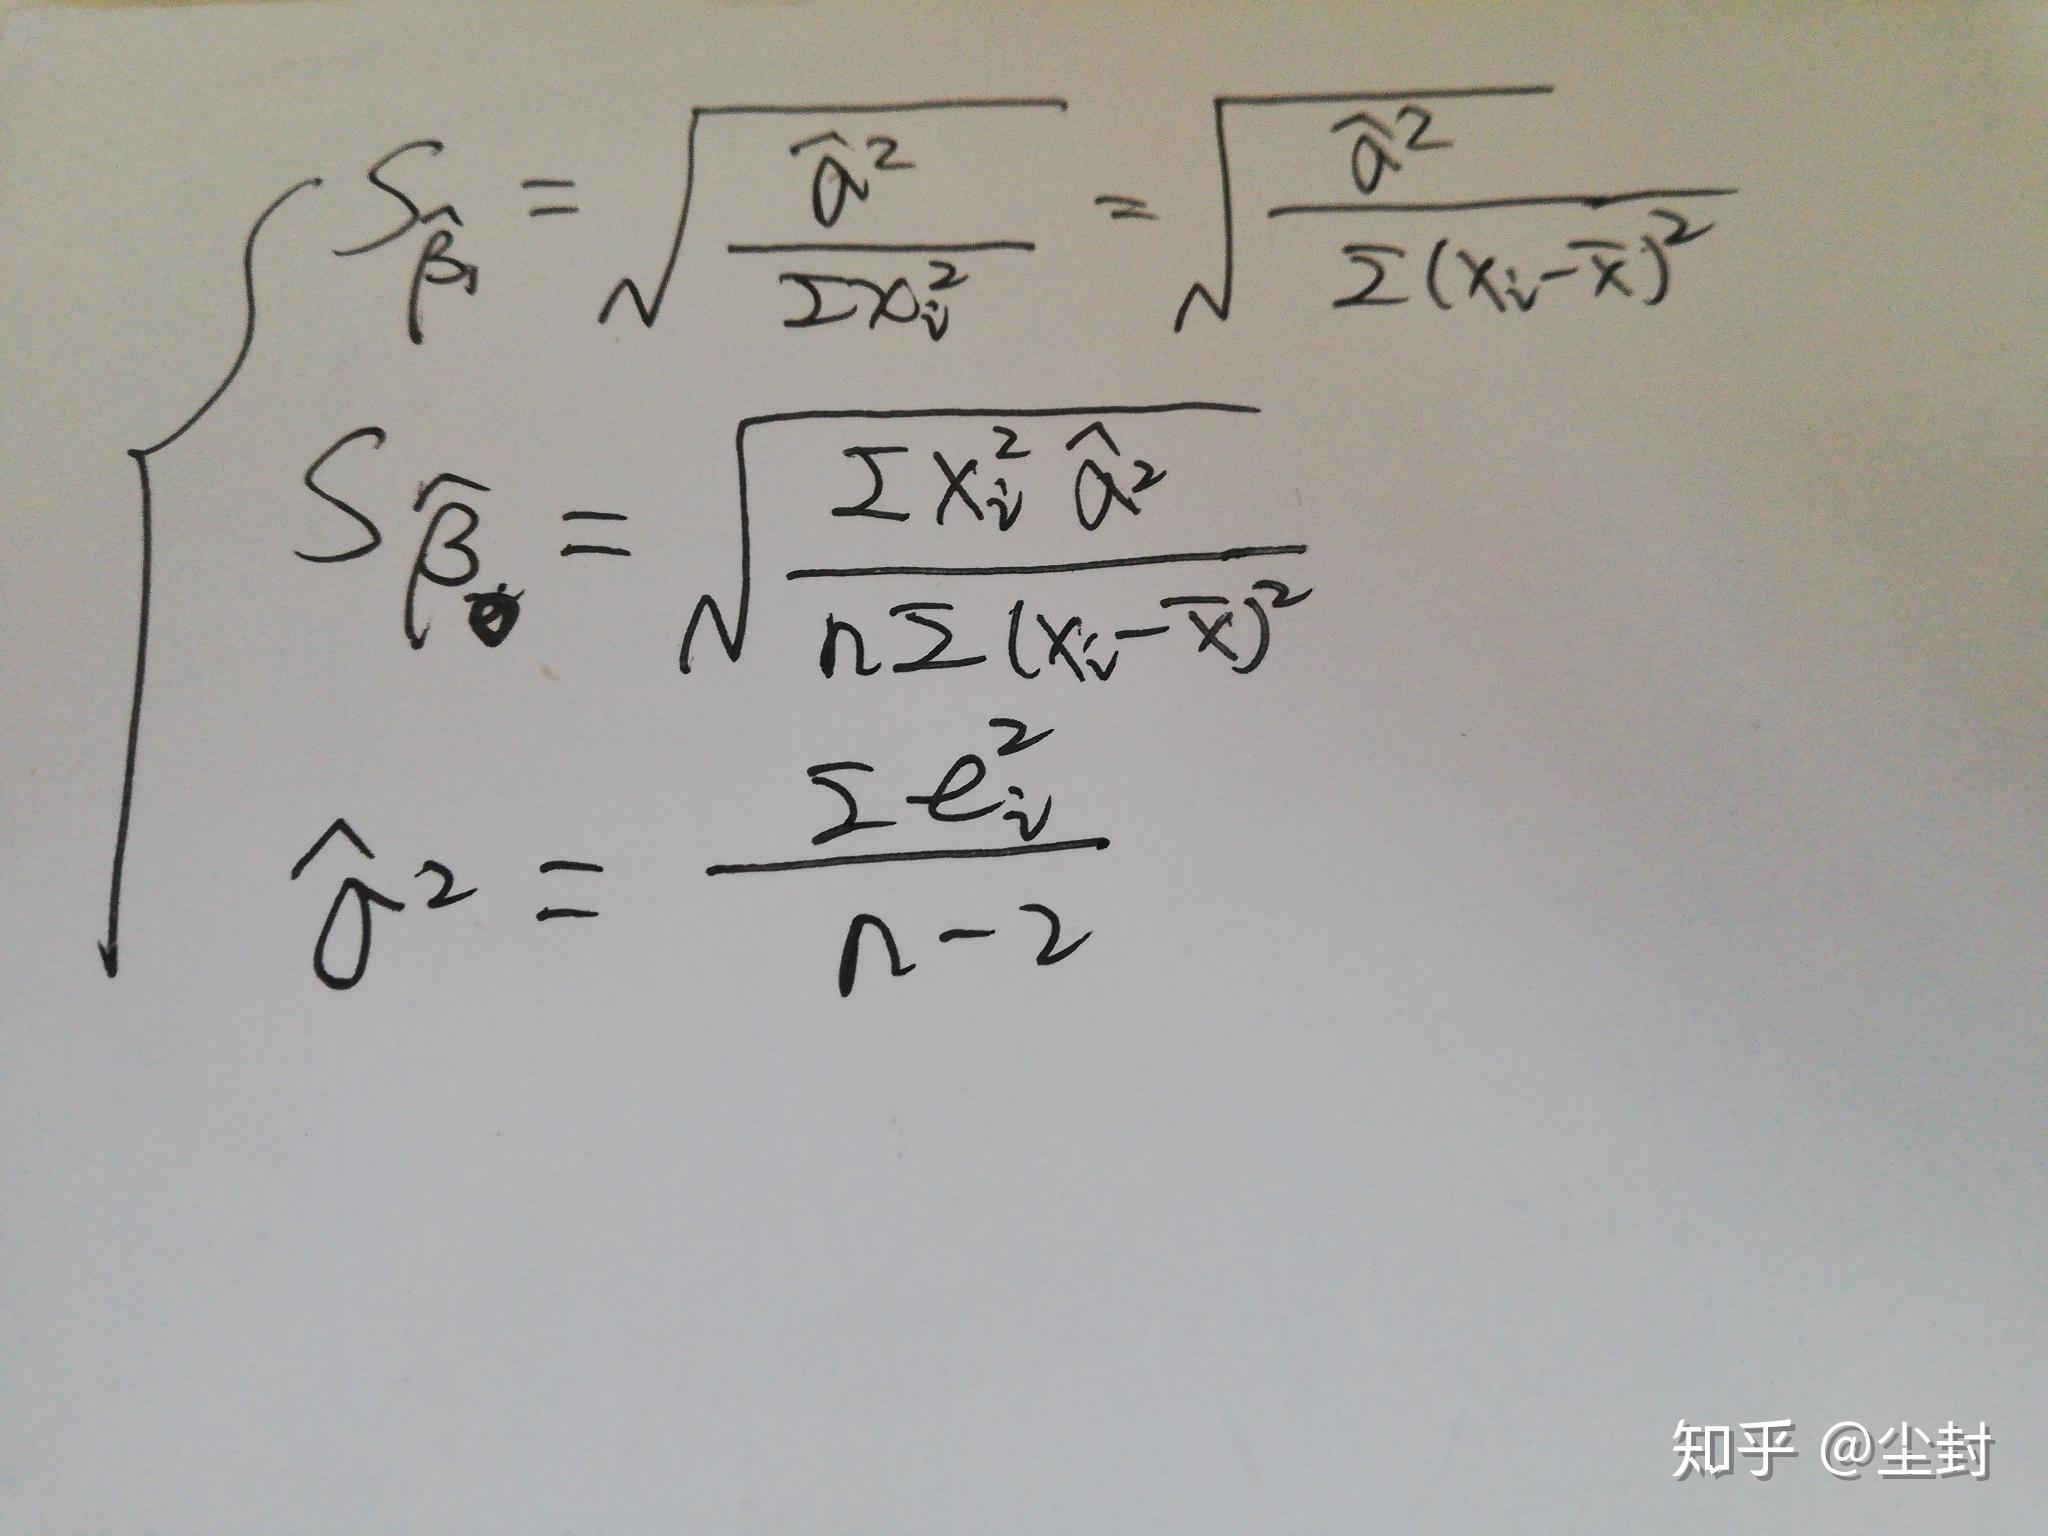 S_{\hat{β}_1} = √(\hat{σ}^2 / Σx_i^2) = √(\hat{σ}^2 / Σ(X_i - \bar{X})^2)
S_{\hat{β}_0} = √(ΣX_i^2 \hat{σ}^2 / nΣ(X_i - \bar{X})^2)
\hat{σ}^2 = Σe_i^2 / (n-2)
知乎 @尘封